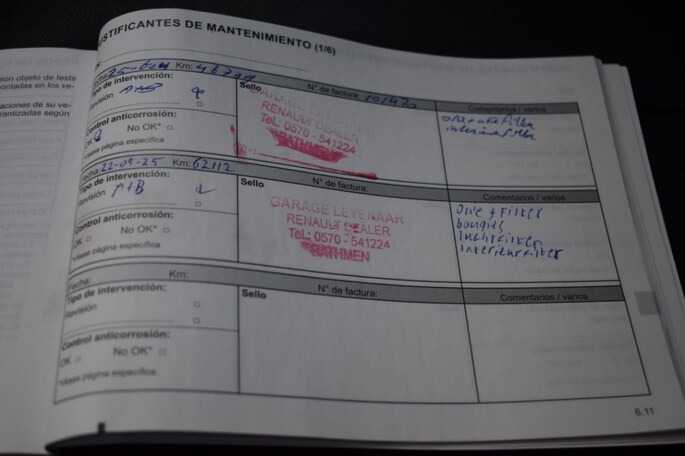 sion objeto de tests
ontadas en los ve-
aciones de su ve-
rantizadas según
JUSTIFICANTES DE MANTENIMIENTO (1/6)
Km: 46739
N° de factura:
Comentarios / varios
Tipo de intervención:
Revisión A+B
Sello
RENAULT DEALER
TeL: 0570 - 541224
RATHMEN
interieurfilter
Control anticorrosión:
OK No OK*
*Véase página específica
Fecha: 22-05-25 Km: 62112
N° de factura:
Comentarios / varios
Tipo de intervención:
Revisión A+B
Sello
GARAGE LEYENAAR
RENAULT DEALER
TeL: 0570 - 541224
RATHMEN
Olie + Filter
bougies
Luchtfilter
Interieurfilter
Control anticorrosión:
OK No OK*
*Véase página específica
Fecha: Km:
N° de factura:
Comentarios / varios
Tipo de intervención:
Revisión
Sello
Control anticorrosión:
OK No OK*
*Véase página específica
6.11